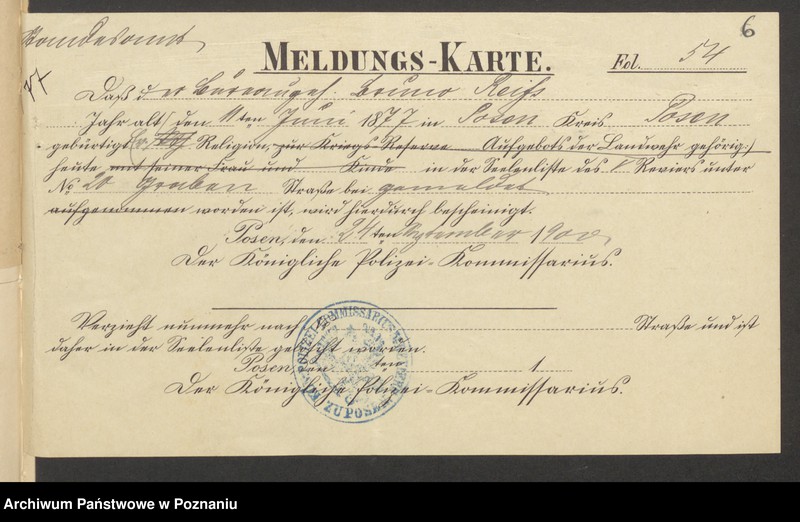 6
Standesamt
MELDUNGS-KARTE.
Fol. 54
Daß der Büreaugeh. Bruno Reiß
Jahr alt, den 11ten Juni 1877 in Posen Kreis Posen
gebürtigt Religion, zur Kriegs-Reserve Aufgebots der Landwehr gehörig,
heute mit seiner Frau und Kinde in der Seelenliste des V Reviers unter
No 20 Graben Straße bei gemeldet
aufgenommen worden ist, wird hierdurch bescheinigt.
Posen, den 24ten September 1900
Der Königliche Polizei-Kommissarius.
Verzieht nunmehr nach Straße und ist
daher in der Seelenliste gelöscht worden.
Posen, den ten 1
Der Königliche Polizei-Kommissarius.
ZU POSEN
Archiwum Państwowe w Poznaniu